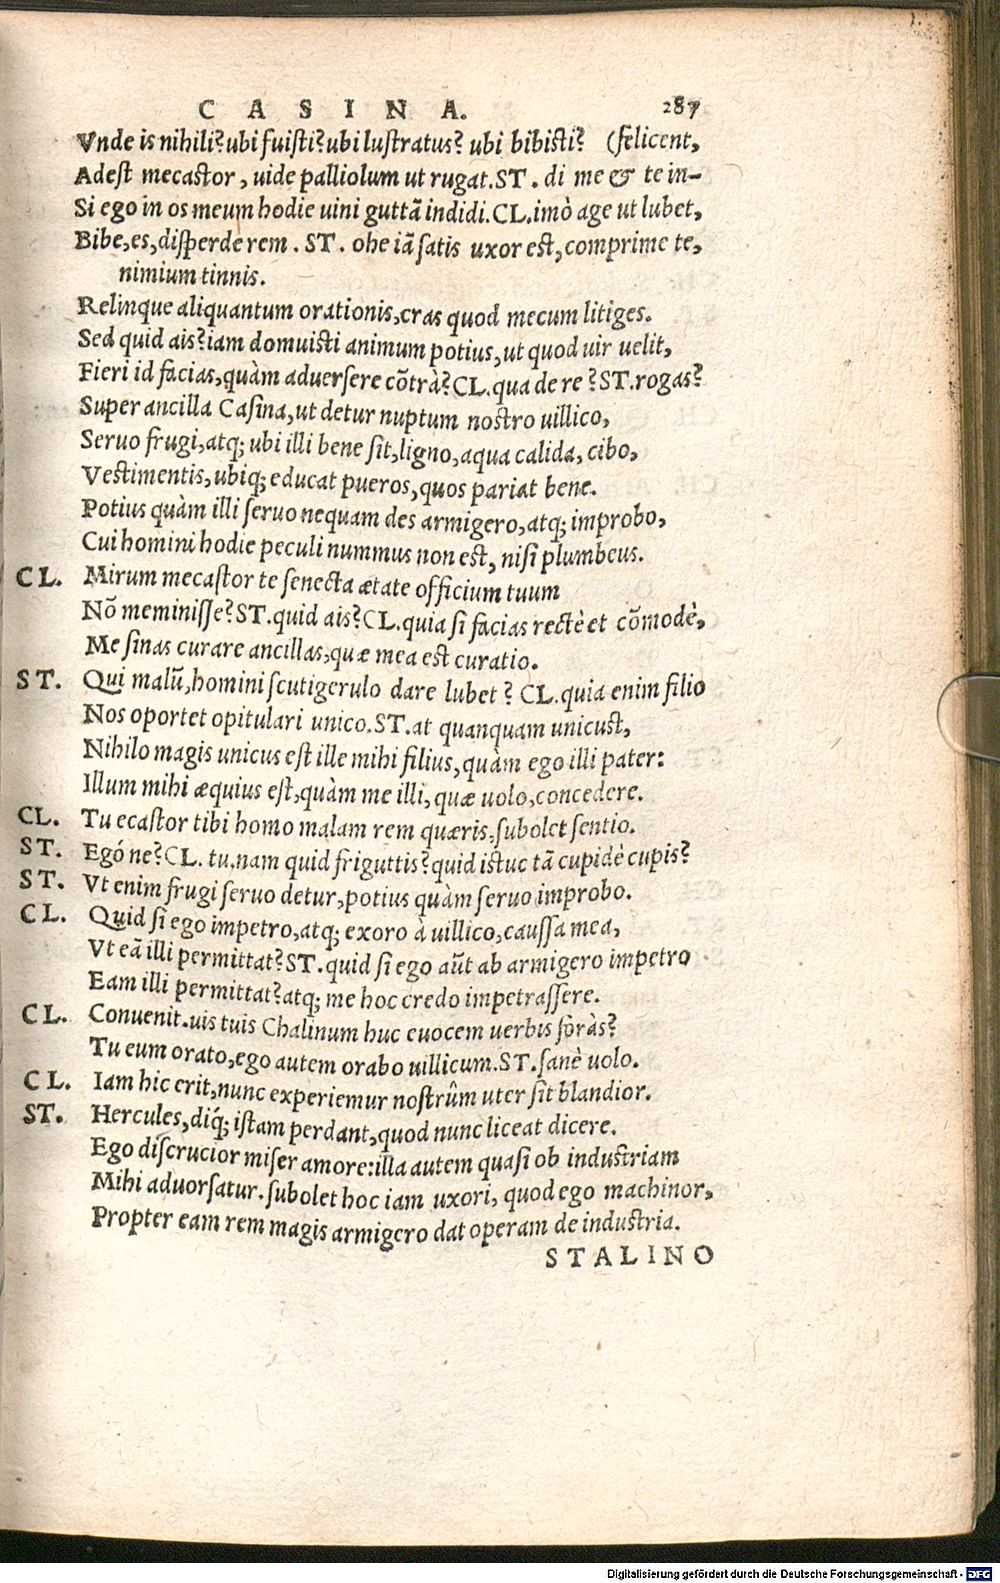 CASINA. 287
Vnde is nihili? ubi fuisti? ubi lustratus? ubi bibisti? (felicent,
Adest mecastor, uide palliolum ut rugat. ST. di me & te in-
Si ego in os meum hodie uini guttã indidi. CL. imò age ut lubet,
Bibe, es, disperde rem. ST. ohe iã satis uxor est, comprime te,
nimium tinnis.
Relinque aliquantum orationis, cras quod mecum litiges.
Sed quid ais? iam domuisti animum potius, ut quod uir uelit,
Fieri id facias, quàm aduersere cõtrà? CL. qua de re? ST. rogas?
Super ancilla Casina, ut detur nuptum nostro uillico,
Seruo frugi, atq; ubi illi bene sit, ligno, aqua calida, cibo,
Vestimentis, ubiq; educat pueros, quos pariat bene.
Potius quàm illi seruo nequam des armigero, atq; improbo,
Cui homini hodie peculi nummus non est, nisi plumbeus.
CL. Mirum mecastor te senecta ætate officium tuum
Nõ meminisse? ST. quid ais? CL. quia si facias rectè et cõmodè,
Me sinas curare ancillas, quæ mea est curatio.
ST. Qui malũ, homini scutigerulo dare lubet? CL. quia enim filio
Nos oportet opitulari unico. ST. at quanquam unicust,
Nihilo magis unicus est ille mihi filius, quàm ego illi pater:
Illum mihi æquius est, quàm me illi, quæ uolo, concedere.
CL. Tu ecastor tibi homo malam rem quæris, subolet sentio.
ST. Egó ne? CL. tu. nam quid friguttis? quid istuc tã cupidè cupis?
ST. Vt enim frugi seruo detur, potius quàm seruo improbo.
CL. Quid si ego impetro, atq; exoro à uillico, caussa mea,
Vt eã illi permittat? ST. quid si ego aũt ab armigero impetro
Eam illi permittat? atq; me hoc credo impetrassere.
CL. Conuenit. uis tuis Chalinum huc euocem uerbis foràs?
Tu eum orato, ego autem orabo uillicum. ST. sanè uolo.
CL. Iam hic erit, nunc experiemur nostrûm uter sit blandior.
ST. Hercules, diq́; istam perdant, quod nunc liceat dicere.
Ego discrucior miser amore: illa autem quasi ob industriam
Mihi aduorsatur. subolet hoc iam uxori, quod ego machinor,
Propter eam rem magis armigero dat operam de industria.
STALINO
Digitalisierung gefördert durch die Deutsche Forschungsgemeinschaft - DFG